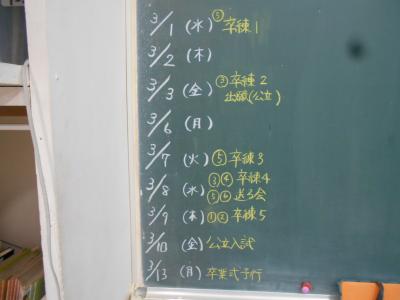 3/1 (水) ⑤ 卒練1
3/2 (木)
3/3 (金) ③ 卒練2
出願(公立)
3/6 (月)
3/7 (火) ⑤ 卒練3
3/8 (水) ③④ 卒練4
⑤⑥ 送る会
3/9 (木) ①② 卒練5
3/10 (金) 公立入試
3/13 (月) 卒業式予行